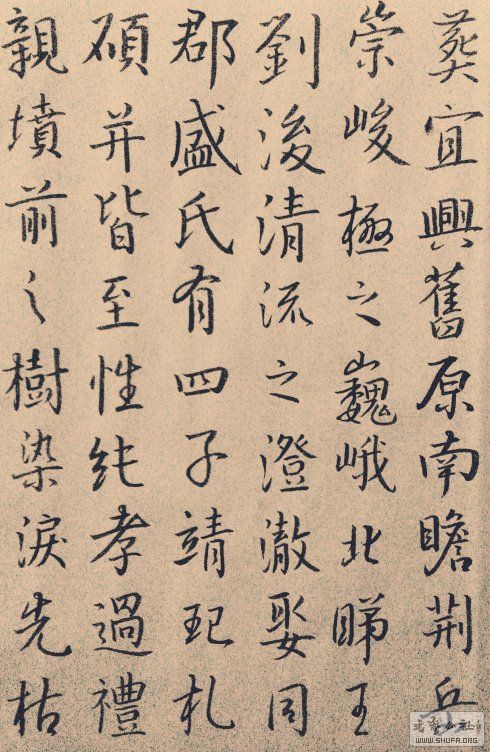 葬宜興舊原南瞻荆岳
崇峻極之巍峨北睇王
劉浚清流之澄澈娶同
郡盛氏有四子靖玘札
碩并皆至性純孝過禮
親墳前之樹染淚先枯
WWW.SHUFA.ORG